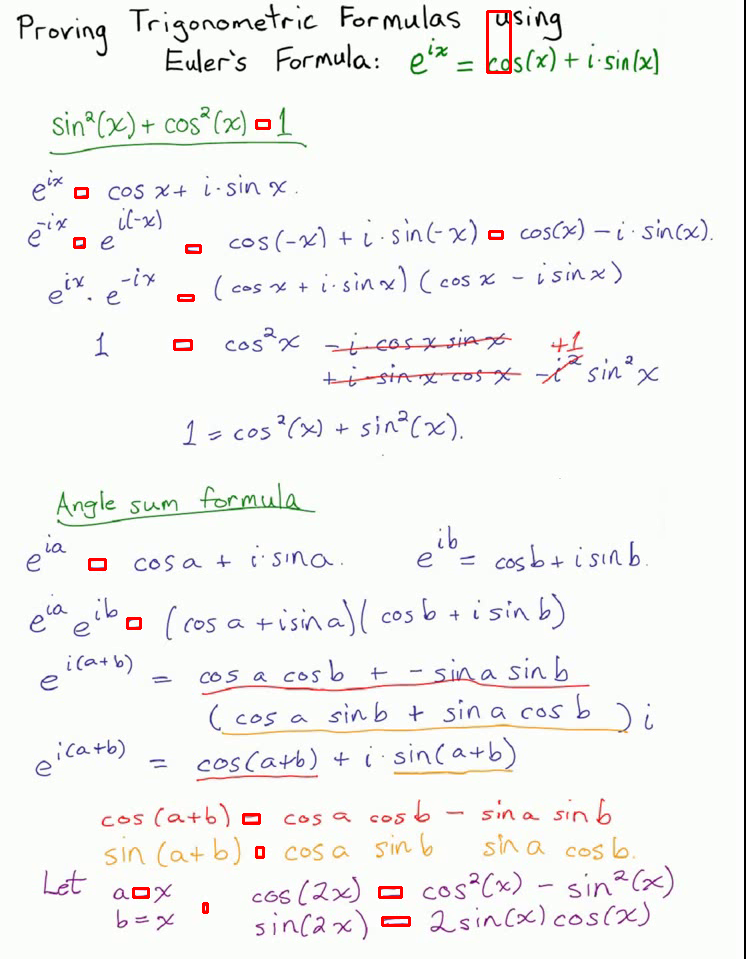 Proving Trigonometric Formulas using
Euler's Formula: e^{ix} = cos(x) + i·sin(x)
sin²(x) + cos²(x) 1
e^{ix} cos x + i·sin x.
e^{-ix} e^{i(-x)} cos(-x) + i·sin(-x) cos(x) - i·sin(x).
e^{ix}·e^{-ix} (cos x + i·sin x)(cos x - i sin x)
1 cos²x - i·cos x sin x +1
+ i·sin x cos x - i² sin²x
1 = cos²(x) + sin²(x).
Angle sum formula
e^{ia} cos a + i·sin a. e^{ib} = cos b + i sin b.
e^{ia} e^{ib} (cos a + i sin a)(cos b + i sin b)
e^{i(a+b)} = cos a cos b + - sin a sin b
(cos a sin b + sin a cos b) i
e^{i(a+b)} = cos(a+b) + i·sin(a+b)
cos(a+b) cos a cos b - sin a sin b
sin(a+b) cos a sin b sin a cos b.
Let a x cos(2x) cos²(x) - sin²(x)
b = x sin(2x) 2 sin(x) cos(x)